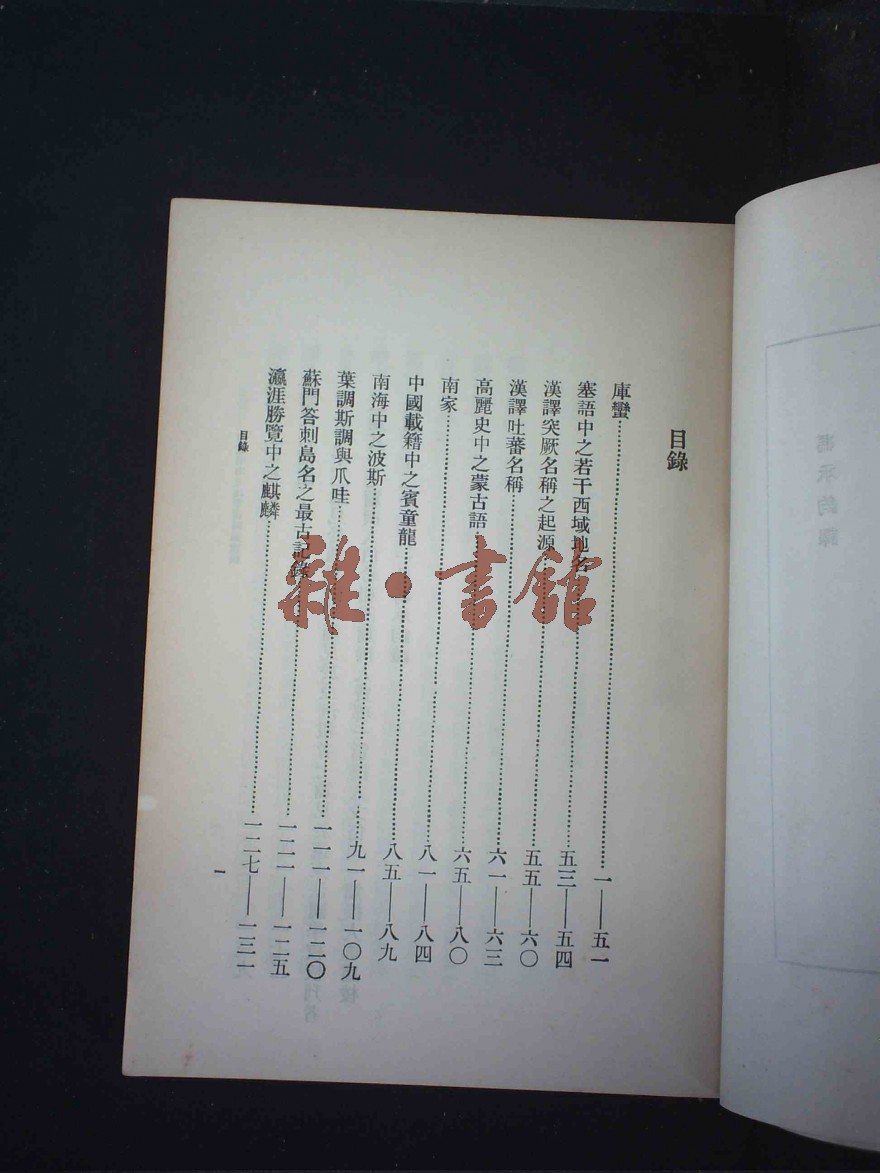 馮承鈞譯
目錄
庫蠻……一——五一
塞語中之若干西域地名……五三——五四
漢譯突厥名稱之起源……五五——六〇
漢譯吐蕃名稱……六一——六三
高麗史中之蒙古語……六五——八〇
南家……八一——八四
中國載籍中之賓童龍……八五——八九
南海中之波斯……九一——一〇九
葉調斯調與爪哇……一一一——一二〇
蘇門答剌島名之最古記錄……一二一——一二五
瀛涯勝覽中之麒麟……一二七——一三一
目錄
一
雜·書館